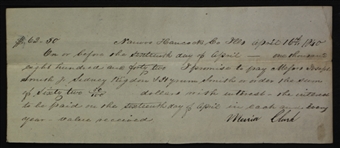 $62.50 Nauvoo Hancock Co Ills April 16th 1840
On or before the sixteenth day of April one thousand
eight hundred and forty two I promise to pay Messrs Joseph
Smith Jr Sidney Rigdon & Hyrum Smith or order the sum
of Sixty two dollars with interest the interest
to be paid on the sixteenth day of April in each and every
year value received Clark